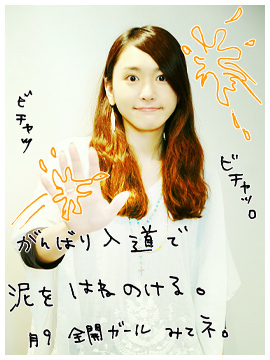 ビチャッ
ビチャッ。
がんばり入道で
泥をはねのける。
月9 全開ガール みてネ。